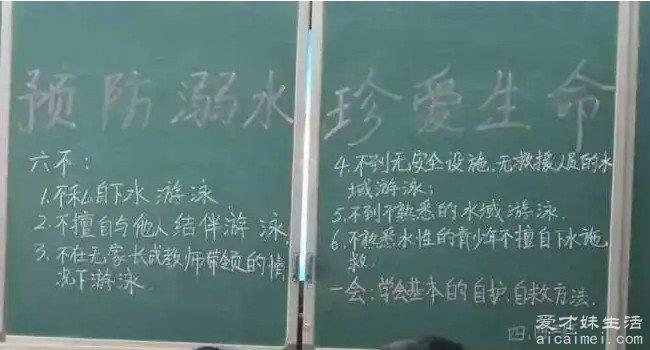 预防溺水 珍爱生命
六不：
1.不私自下水游泳
2.不擅自与他人结伴游泳
3.不在无家长或教师带领的情
况下游泳
4.不到无安全设施、无救援人员的水
域游泳；
5.不到不熟悉的水域游泳.
6.不熟悉水性的青少年不擅自下水施
救.
一会：学会基本的自护、自救方法.
四.
爱才妹生活
aicaimei.com